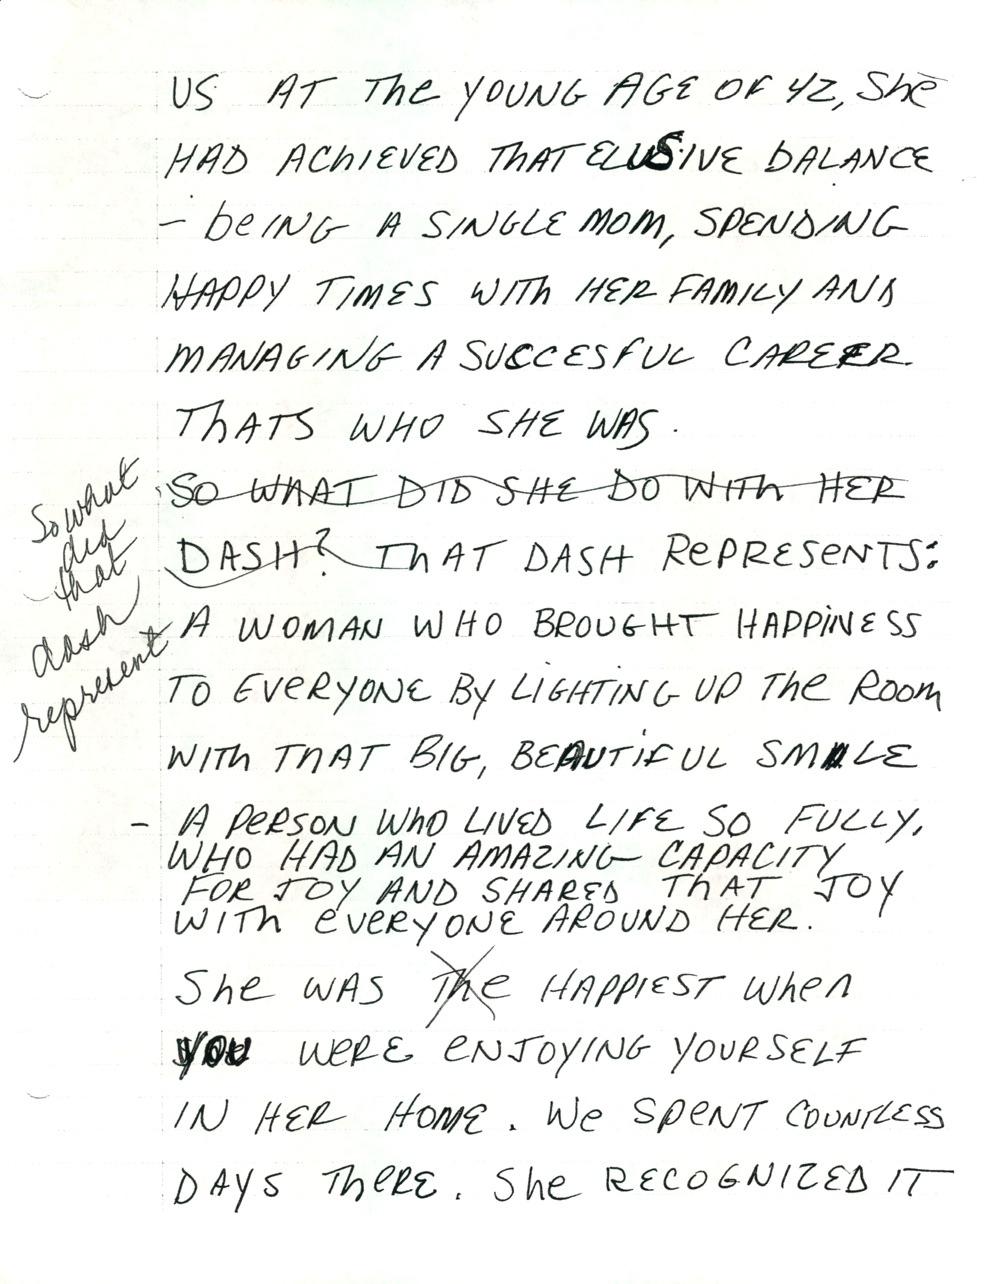 US AT The YOUNG AGE OF 42, She
HAD AChIEVED ThAT ELUSIVE bALANCE
- beING A SINGLE MOM, SPENDING
HAPPY TIMES WITh HER FAMILY AND
MANAGING A SUCCESFUL CAREER.
ThATS WHO SHE WAS.
SO WHAT DID SHE DO WITh HER
DASH? ThAT DASH RePRESENTS:
So what
did
that
dash
represent
A WOMAN WHO BROUGHT HAPPINESS
TO EVERYONE BY LIGHTING UP The ROOM
WITh ThAT BIG, BEAUTIFUL SMILE
- A PERSON WhO LIVED LIFE SO FULLY,
WHO HAD AN AMAZING CAPACITY
FOR JOY AND SHARED ThAT JOY
WITh EVERYONE AROUND HER.
She WAS The HAPPIEST When
YOU WERE ENJOYING YOURSELF
IN HER HOME. We SPENT COUNTLESS
DAYS TheRE. She RECOGNIZED IT